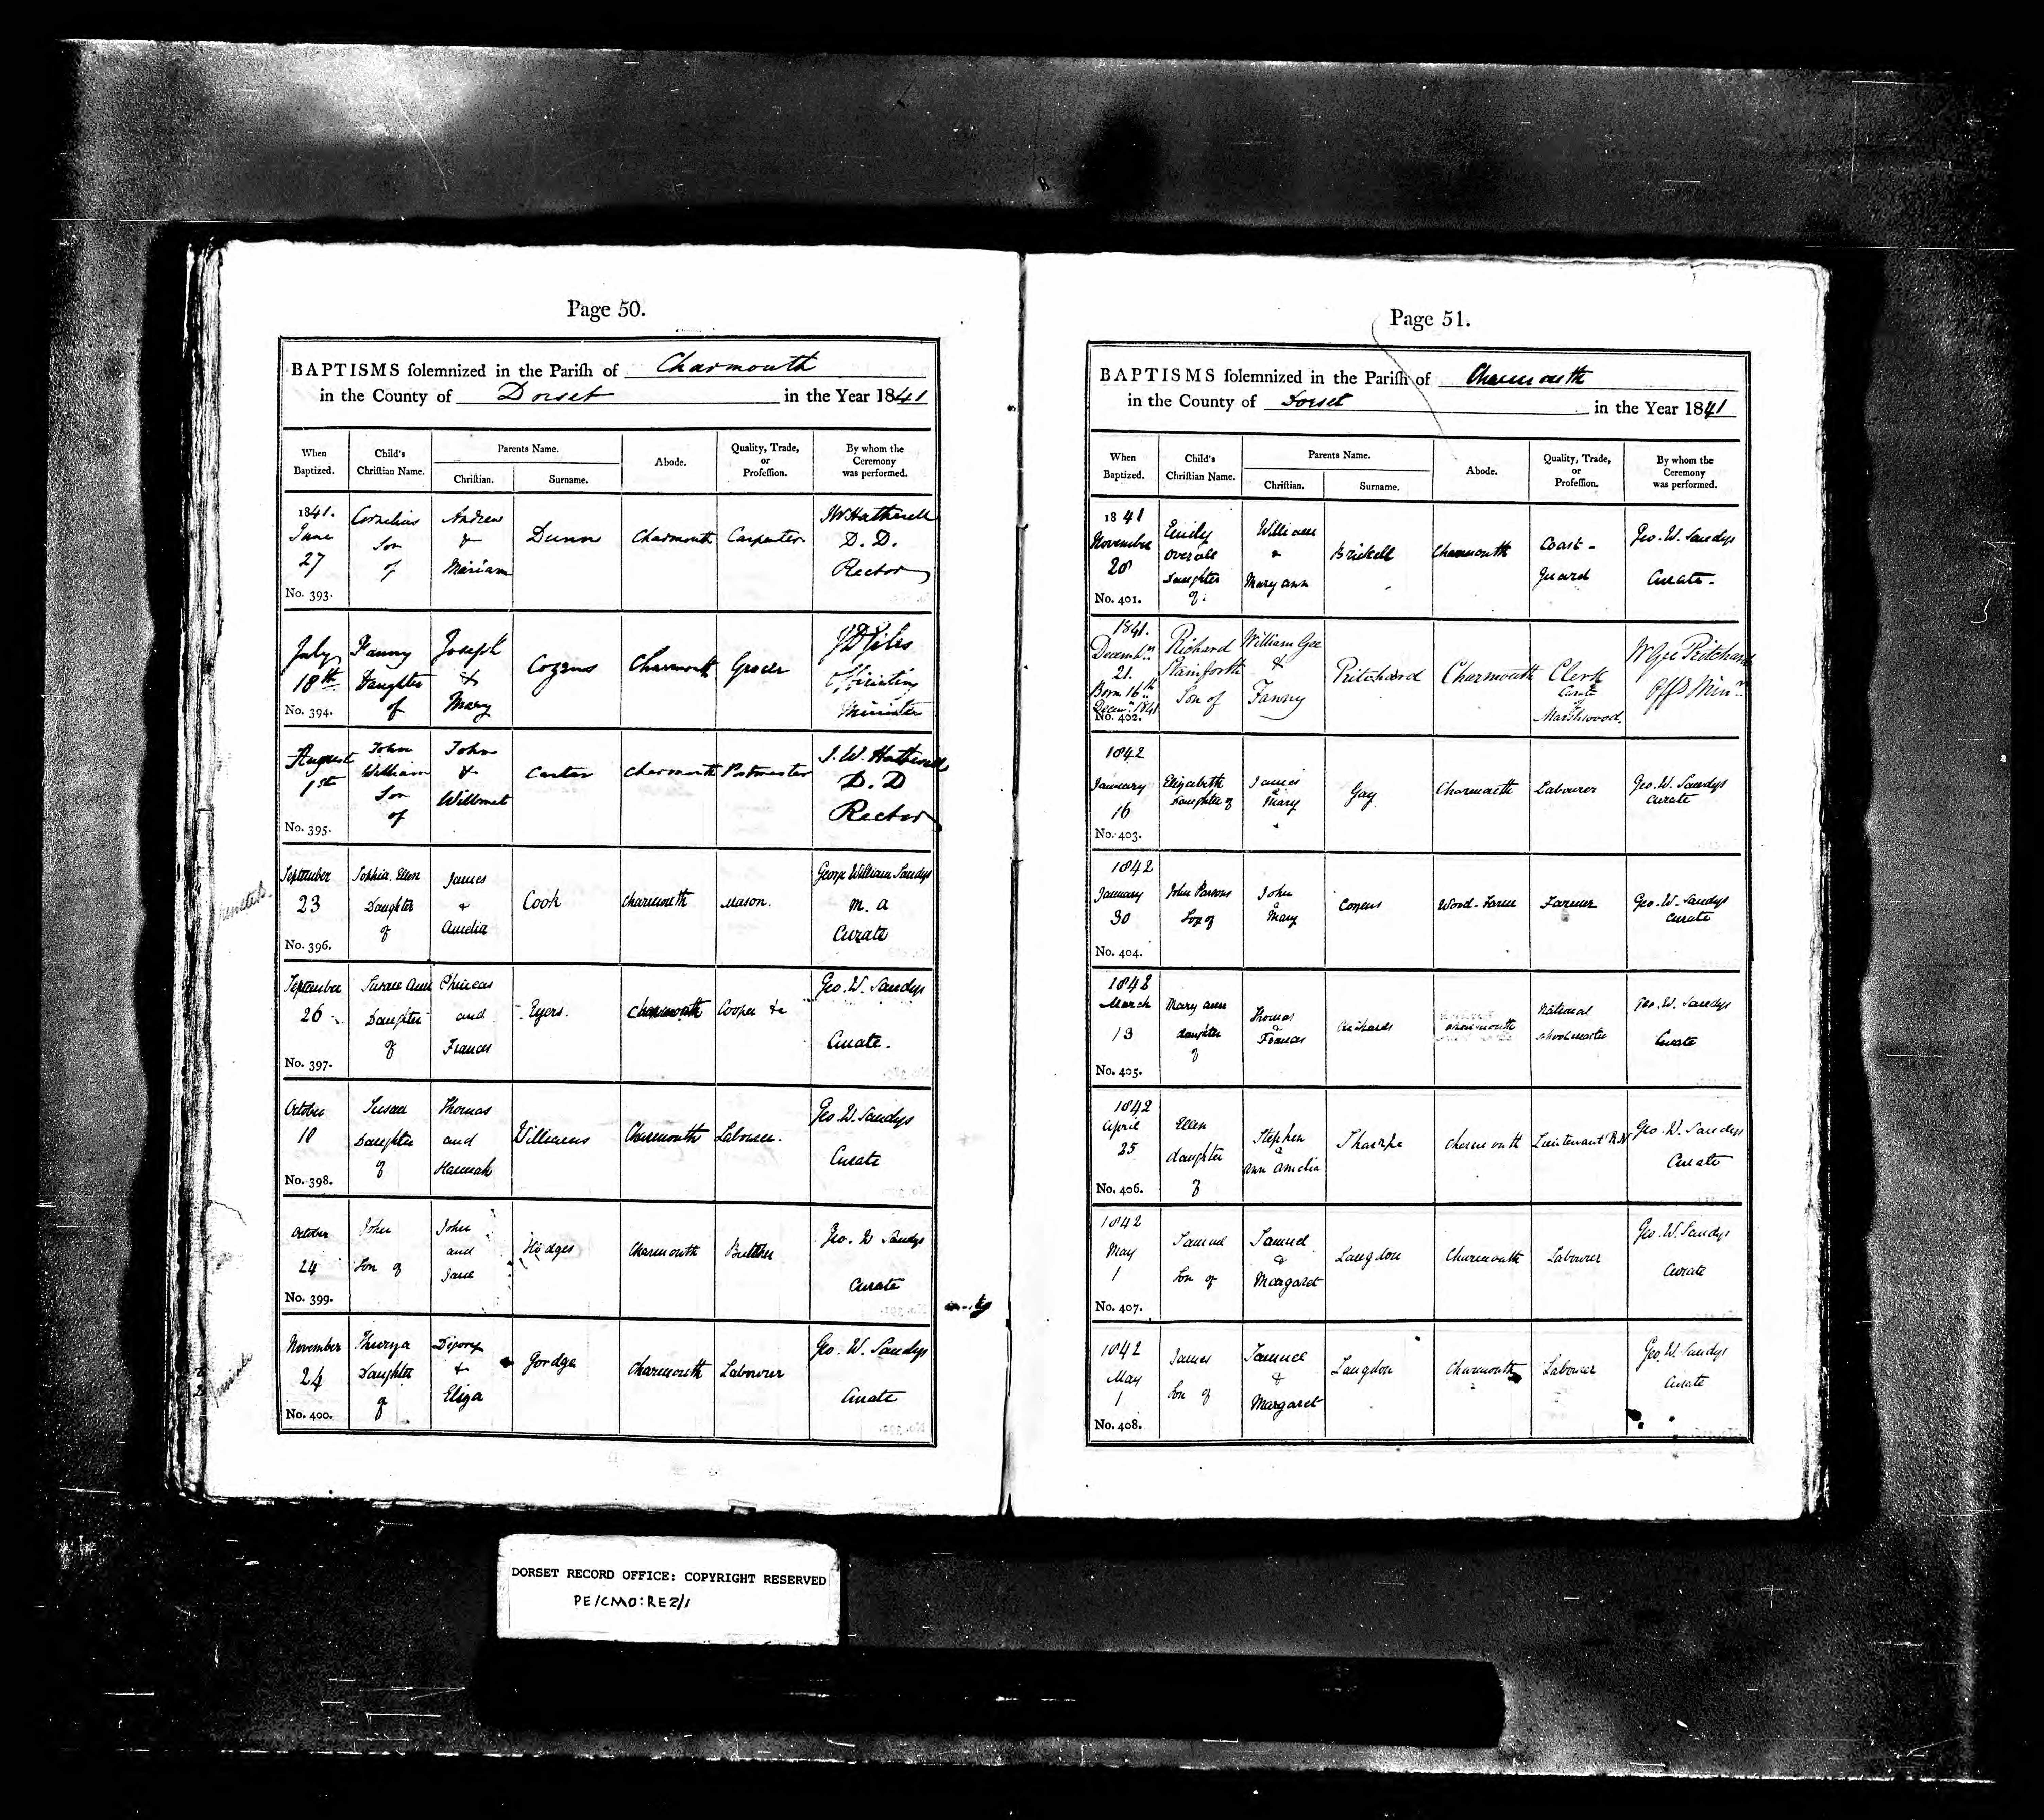 Page 50.
BAPTISMS ſolemnized in the Pariſh of Charmouth
in the County of Dorset in the Year 1841
When Baptized. Child's Chriſtian Name. Parents Name. Chriſtian. Surname. Abode. Quality, Trade, or Profeſſion. By whom the Ceremony was performed.
1841. June 27 No. 393. Cornelius Son of Andrew & Miriam Dunn Charmouth Carpenter D. D. Rector
July 18th No. 394. Fanny Daughter of Joseph & Mary Cozens Charmouth Grocer Officiating Minister
August 1st No. 395. John William Son of John & Willmet Carter Charmouth Postmaster D. D Rector
September 23 No. 396. Sophia Ellen Daughter of James & Amelia Cook Charmouth Mason. George William Sandys M. A Curate
September 26 No. 397. Susan Ann Daughter of Phineas and Frances Eyers Charmouth Cooper &c Geo. W. Sandys Curate.
October 10 No. 398. Susan Daughter of Thomas and Hannah Williams Charmouth Labourer. Geo. W. Sandys Curate
October 24 No. 399. John Son of John and Jane Hodges Charmouth Butcher Geo. W Sandys Curate
November 24 No. 400. Thurza Daughter of & Eliza Gordge Charmouth Labourer Geo. W. Sandys Curate
Page 51.
BAPTISMS ſolemnized in the Pariſh of Charmouth
in the County of Dorset in the Year 1841
When Baptized. Child's Chriſtian Name. Parents Name. Chriſtian. Surname. Abode. Quality, Trade, or Profeſſion. By whom the Ceremony was performed.
1841 November 28 No. 401. Emily Overall Daughter of William & Mary Ann Brickell Charmouth Coast-Guard Geo. W. Sandys Curate.
1841. Decemb. 21. Born 16th Decem. 1841 No. 402. Richard Stainforth Son of William Gee & Fanny Pritchard Charmouth Clerk Curate of Marshwood. W Gee Pritchard Offg Minr
1842 January 16 No. 403. Elizabeth daughter of James & Mary Gay Charmouth Labourer Geo. W. Sandys Curate
1842 January 30 No. 404. John Parsons Son of John & Mary Cozens Wood-Farm Farmer Geo. W. Sandys Curate
1842 March 13 No. 405. Mary Ann daughter of Thomas & Frances Charmouth National Schoolmaster Geo. W. Sandys Curate
1842 April 25 No. 406. Ellen daughter of Stephen & Ann Amelia Sharpe Charmouth Lieutenant R.N Geo. W. Sandys Curate
1842 May 1 No. 407. Samuel Son of Samuel & Margaret Langdon Charmouth Labourer Geo. W. Sandys Curate
1842 May 1 No. 408. James Son of Samuel & Margaret Langdon Charmouth Labourer Geo. W. Sandys Curate
DORSET RECORD OFFICE: COPYRIGHT RESERVED
PE/CMO:RE2/1